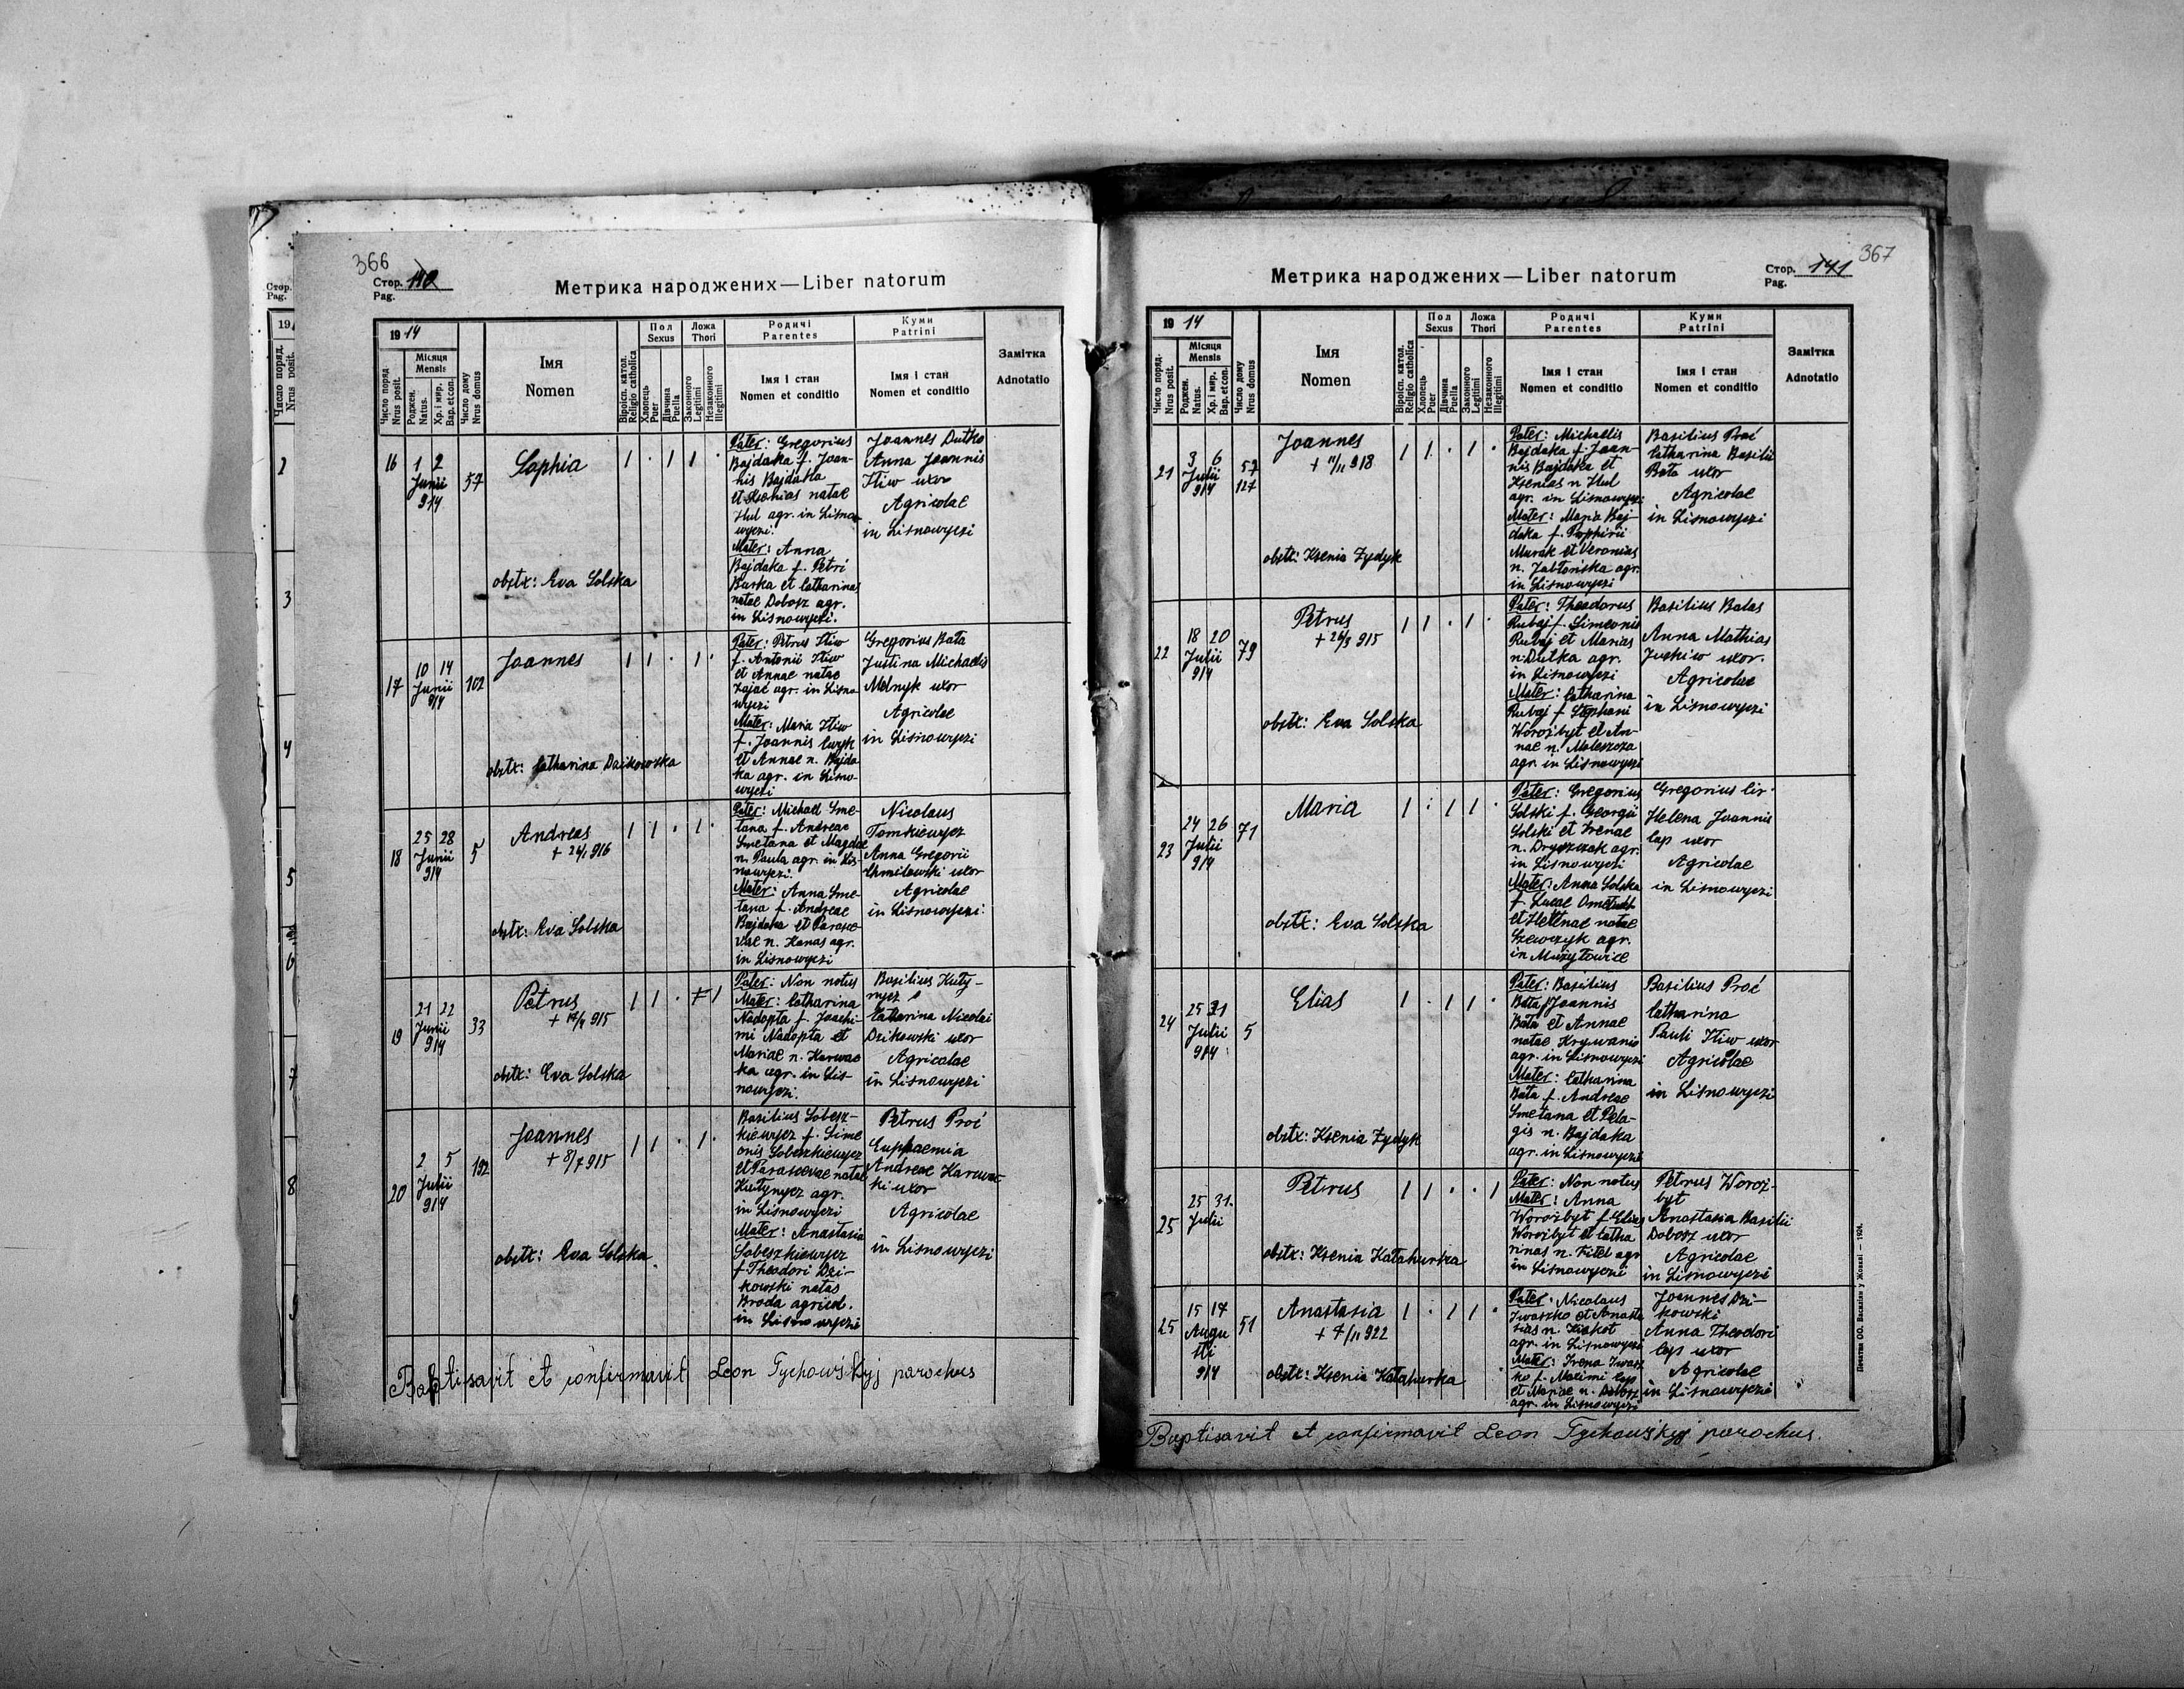 366
Стор. 140
Pag.
Метрика народжених — Liber natorum
19 14
Число поряд. Nrus posit.
Місяця Mensis
Роджен. Natus.
Хр. і мир. Bap. et con.
Число дому Nrus domus
Імя
Nomen
Віроісп. катол. Religio catholica
Пол Sexus
Хлопець Puer
Дівчина Puella
Ложа Thori
Законного Legitimi
Незаконного Illegitimi
Родичі Parentes
Імя і стан
Nomen et conditio
Куми Patrini
Імя і стан
Nomen et conditio
Замітка
Adnotatio
16 1 2 Junii 914 57
Sophia
obstx: Eva Solska
Pater: Gregorius
Bajdaka f. Joan-
nis Bajdaka
et Kseniae natae
Hul agr. in Lisno-
wyczi.
Mater: Anna
Bajdaka f. Petri
Burka et Catharinae
natae Dobosz agr.
in Lisnowyczi.
Joannes Dutko
Anna Joannis
Itiw uxor
Agricolae
in Lisnowyczi
17 10 14 Junii 914 102
Joannes
obstx: Catharina Dzikowska
Pater: Petrus Itiw
f. Antonii Itiw
et Annae natae
Zajac agr. in Lisno-
wyczi
Mater: Maria Itiw
f. Joannis
et Annae n. Bajda
ka agr. in Lisno-
wyczi
Gregorius Bata
Justina Michaelis
Melnyk uxor
Agricolae
in Lisnowyczi
18 25 28 Junii 914 5
Andreas
+ 24/1 916
obstx: Eva Solska
Pater: Michael Sme-
tana f. Andreae
Smetana et Magdae
n. Paula agr. in Lis-
nowyczi.
Mater: Anna Sme-
tana f. Andreae
Bajdaka et Parasce
vae n. Kanas agr.
in Lisnowyczi
Nicolaus
Tomkiewycz
Anna Gregorii
Chmilowski uxor
Agricolae
in Lisnowyczi.
19 21 22 Junii 914 33
Petrus
915
obstx: Eva Solska
Pater: Non notus
Mater: Catharina
Nadopta f. Joachi-
mi Nadopta et
Mariae n. Karwac
ka agr. in Lis-
nowyczi.
Basilius Kuty-
nycz
Catharina Nicolai
Dzikowski uxor
Agricolae
in Lisnowyczi
20 2 5 Julii 914 192
Joannes
+ 8/7 915
obstx: Eva Solska
Basilius Sobesz-
kiewycz f. Sime
onis Sobeszkiewycz
et Parascevae natae
Kutynycz agr.
in Lisnowyczi
Mater: Anastasia
Sobeszkiewycz
f Theodori Dzi-
kowski natae
Broda agricol.
in Lisnowyczi
Petrus Proć
Euphaemia
Andreae Karwac-
ki uxor
Agricolae
in Lisnowyczi
Baptisavit et confirmavit Leon Tychowśkyj parochus
367
Стор. 141
Pag.
Метрика народжених — Liber natorum
19 14
Число поряд. Nrus posit.
Місяця Mensis
Роджен. Natus.
Хр. і мир. Bap. et con.
Число дому Nrus domus
Імя
Nomen
Віроісп. катол. Religio catholica
Пол Sexus
Хлопець Puer
Дівчина Puella
Ложа Thori
Законного Legitimi
Незаконного Illegitimi
Родичі Parentes
Імя і стан
Nomen et conditio
Куми Patrini
Імя і стан
Nomen et conditio
Замітка
Adnotatio
21 3 6 Julii 914 57 127
Joannes
+ 11/11 918
obstx: Ksenia Zydyk
Pater: Michaelis
Bajdaka f. Joan-
nis Bajdaka et
Kseniae n Hul
agr. in Lisnowyczi
Mater: Maria Baj-
daka f. Porphirii
Murak et Veronias
n. Jabłońska agr.
in Lisnowyczi
Basilius Proć
Catharina Basilii
Bata uxor
Agricolae
in Lisnowyczi
22 18 20 Julii 914 79
Petrus
+ 26/3 915
obstx: Eva Solska
Pater: Theodorus
Rubaj f. Simeonis
Rubaj et Marias
n. Dutka agr.
in Lisnowyczi
Mater: Catharina
Rubaj f Stephani
Worożbyt et An-
nae n. Moleszcza
agr. in Lisnowyczi
Basilius Balas
Anna Mathias
Juskiw uxor.
Agricolae
in Lisnowyczi
23 24 26 Julii 914 71
Maria
obstx: Eva Solska
Pater: Gregorius
Solski f. Georgii
Solski et Irenae
n. Dryszczak agr.
in Lisnowyczi
Mater: Anna Solska
f. Lucae
et Helenae natae
Szewczyk agr.
in Mużyłowice
Gregorius Cir
Helena Joannis
Cap uxor
Agricolae
in Lisnowyczi
24 25 31 Julii 914 5
Elias
obstx: Ksenia Zydyk
Pater: Basilius
Bata f Joannis
Bata et Annae
natae Krywanis
agr. in Lisnowyczi
Mater: Catharina
Bata f. Andreae
Smetana et Pela-
gis n. Bajdaka
agr. in Lisnowyczi
Basilius Proć
Catharina
Pauli Itiw uxor
Agricolae
in Lisnowyczi
25 25 31. Julii
Petrus
obstx: Ksenia Katahurka
Pater: Non notus
Mater: Anna
Worożbyt f Elias
Worożbyt et Catha
rinas n. Kitel agr
in Lisnowyczi
Petrus Woroż-
byt
Anastasia Basilii
Dobosz uxor
Agricolae
in Lisnowyczi
25 15 17 Augu sti 914 51
Anastasia
+ 7/11 922
obstx: Ksenia Katahurka
Pater: Nicolaus
Iwaszko et Anasta
sias n.
agr. in Lisnowyczi
Mater: Irena Iwasz
ko f. Maximi Cap
et Mariae n. Dobosz
agr. in Lisnowyczi
Joannes Dzi-
kowski
Anna Theodori
Cap uxor
Agricolae
in Lisnowyczi
Baptisavit et confirmavit Leon Tychowśkyj parochus.
Печатня ОО. Василіян у Жовкві — 1924.